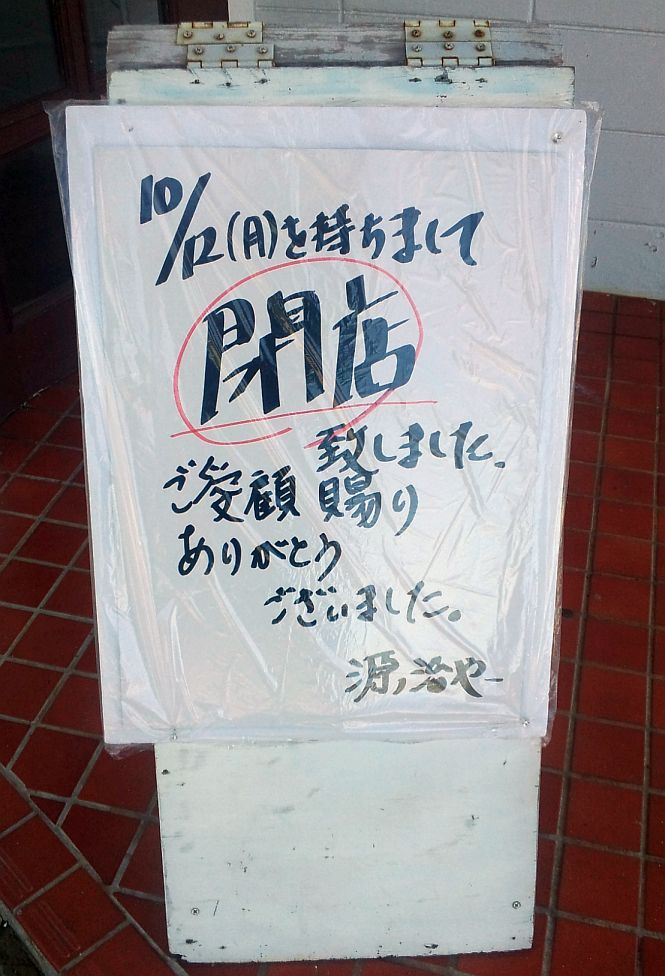 10/12(月)を持ちまして
閉店
致しました。
ご愛顧賜り
ありがとう
ございました。
源ノ治や